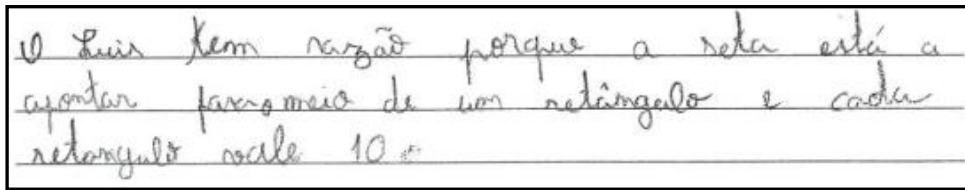 O Luis tem razão porque a seta está a
apontar para o meio de um retângulo e cada
retangulo vale 10.